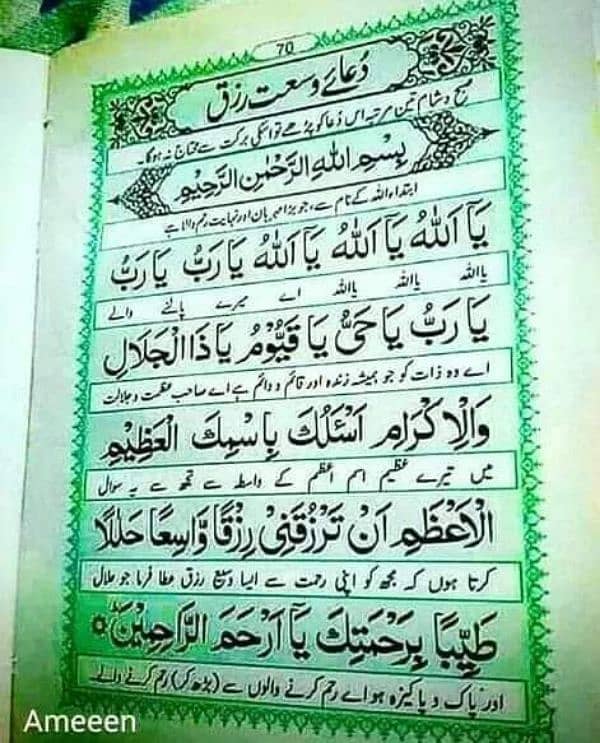 70
دُعائے وسعت رزق
صبح وشام تین مرتبہ اس دُعا کو پڑھے تو اسکی برکت سے محتاج نہ ہوگا۔
بِسْمِ اللهِ الرَّحْمٰنِ الرَّحِيْمِ
ابتداء اللہ کے نام سے، جو بڑا مہربان اور نہایت رحم والا ہے
يَآ اَللهُ يَآ اَللهُ يَآ اَللهُ يَا رَبُّ يَا رَبُّ
یااللہ یااللہ یااللہ اے میرے پالنے والے
يَا رَبُّ يَا حَىُّ يَا قَيُّوْمُ يَا ذَا الْجَلَالِ
اے وہ ذات کو جو ہمیشہ زندہ اور قائم و دائم ہے اے صاحب عظمت و جلالت
وَالْاِكْرَامِ اَسْئَلُكَ بِاسْمِكَ الْعَظِيْمِ
میں تیرے عظیم اسم اعظم کے واسطہ سے تجھ سے یہ سوال
الْاَعْظَمِ اَنْ تَرْزُقَنِىْ رِزْقًا وَّاسِعًا حَلٰلًا
کرتا ہوں کہ مجھ کو اپنی رحمت سے ایسا وسیع رزق عطا فرما جو حلال
طَيِّبًا بِرَحْمَتِكَ يَآ اَرْحَمَ الرَّاحِمِيْنَ
اور پاک و پاکیزہ ہو اے رحم کرنے والوں سے (بڑھ کر) رحم کرنے والے۔
Ameeen